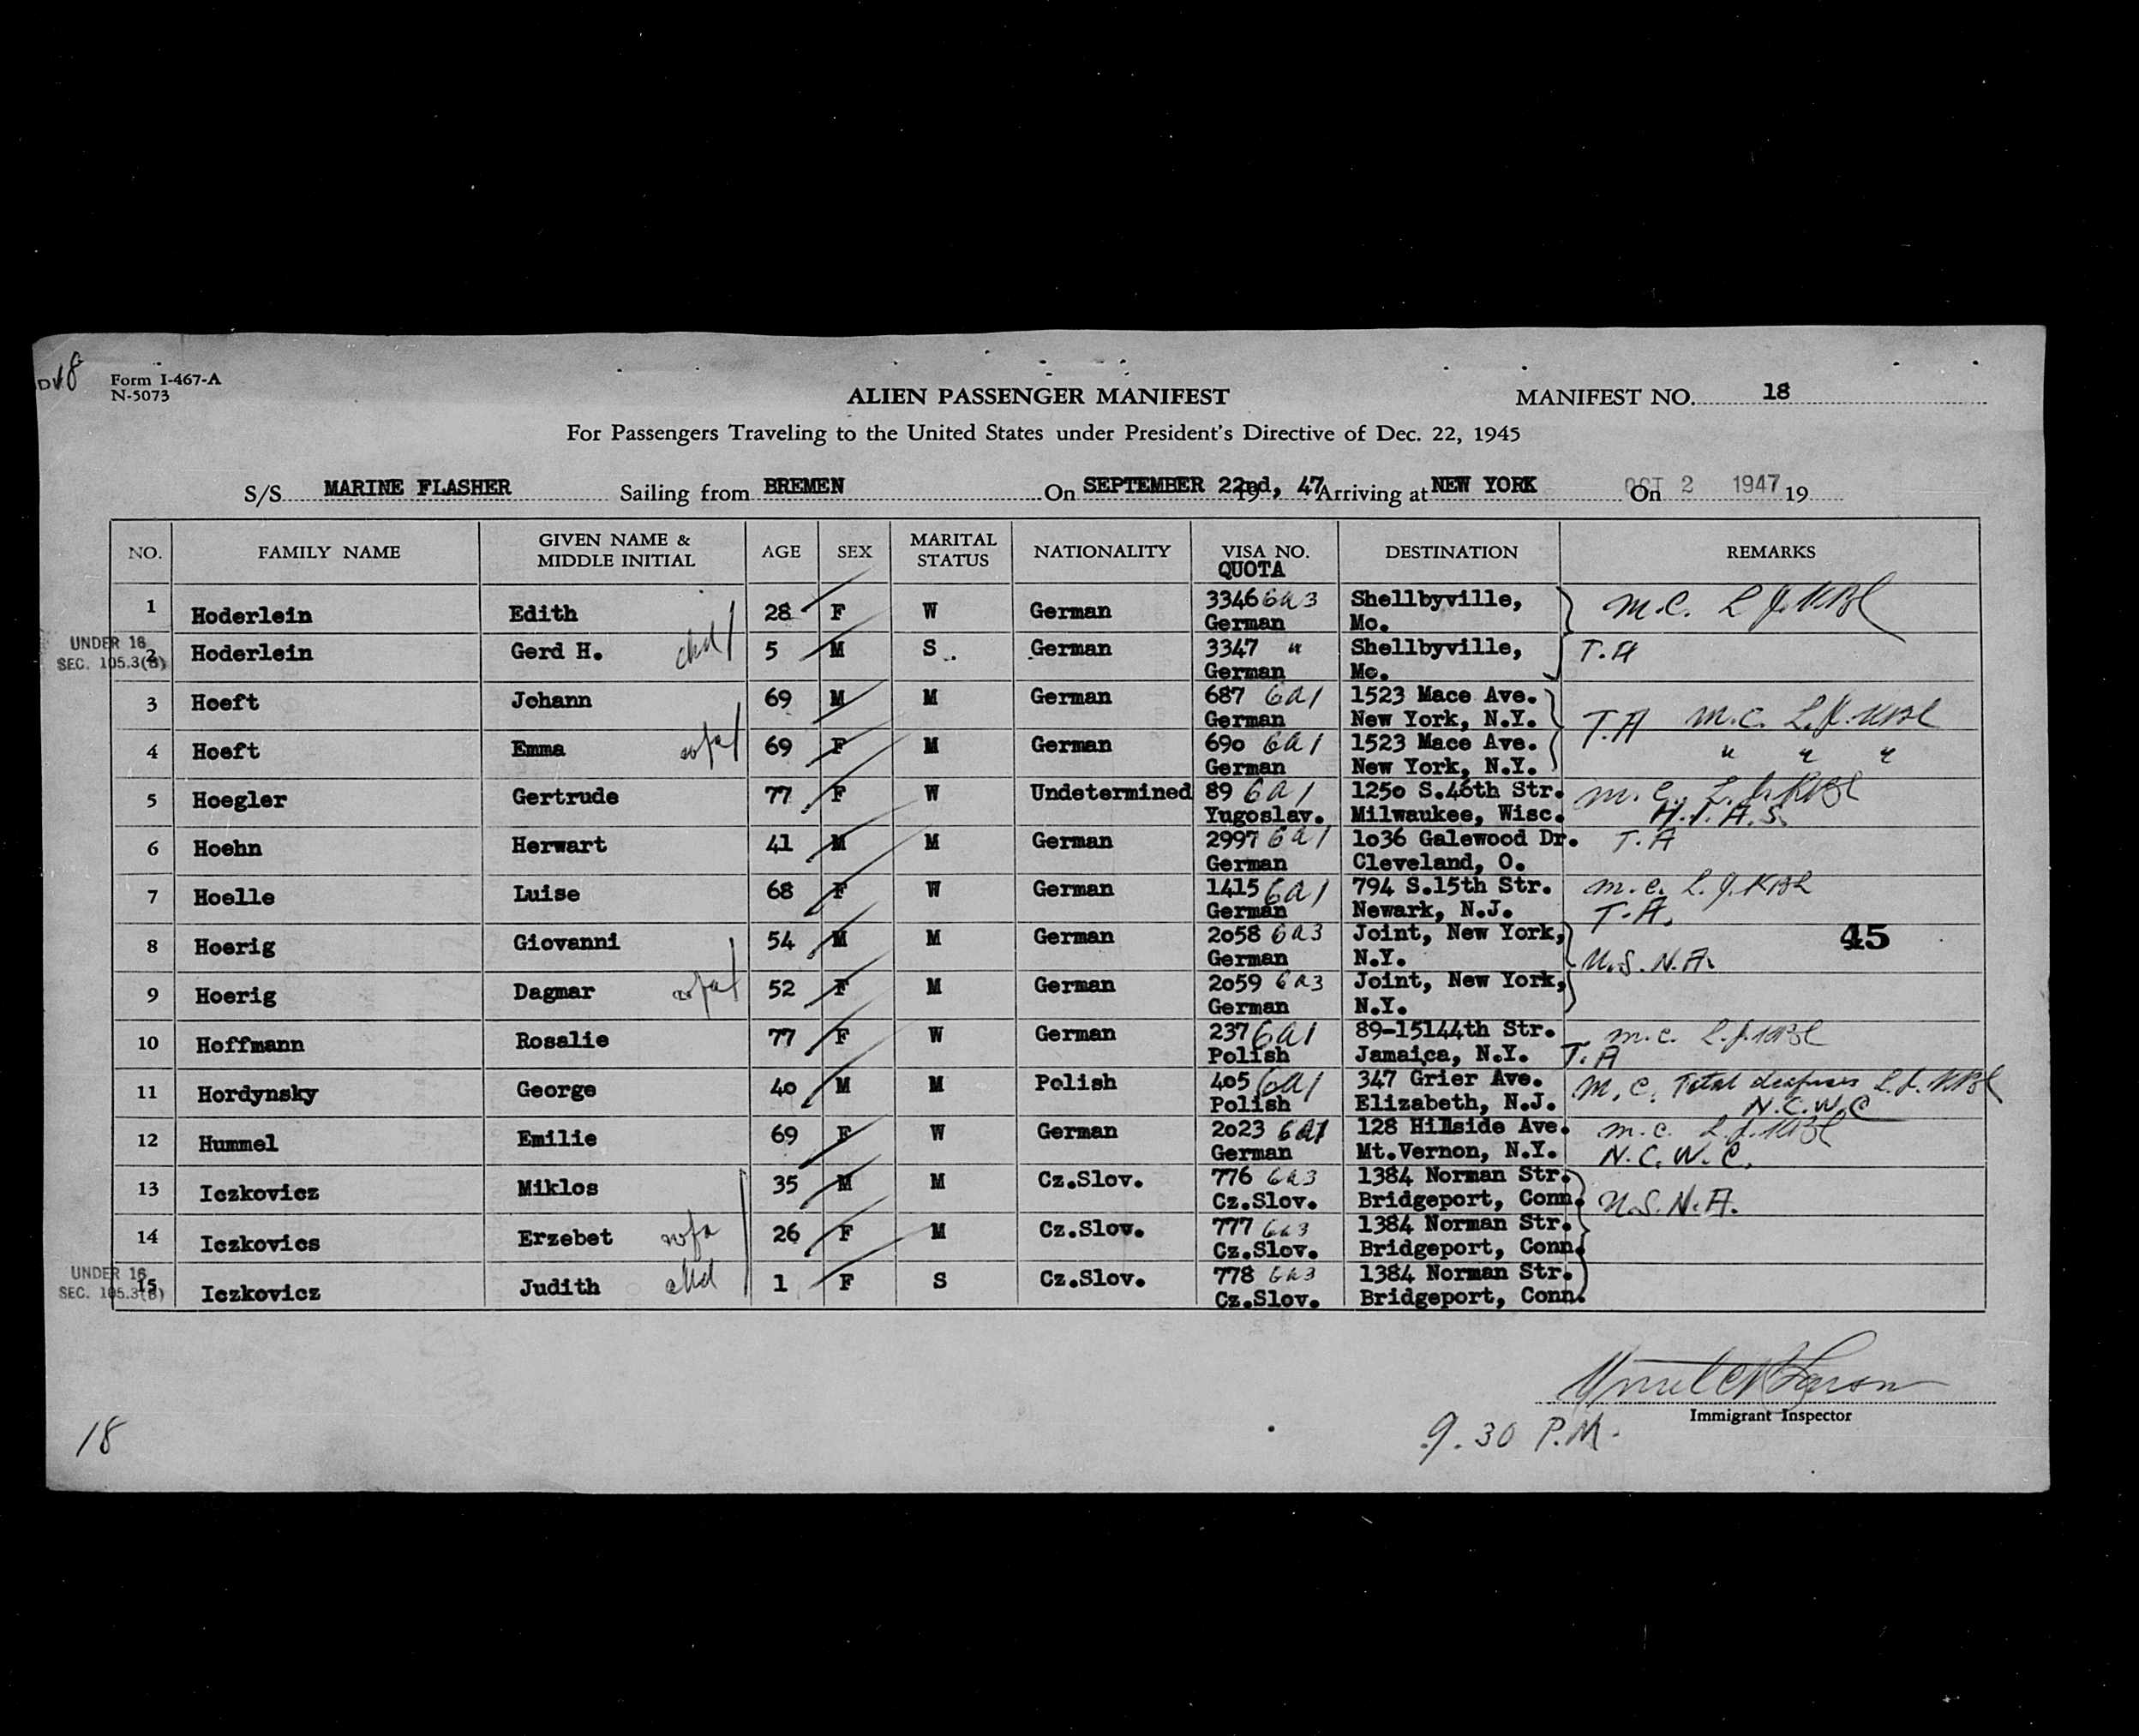 18
Form I-467-A
N-5073
ALIEN PASSENGER MANIFEST
MANIFEST NO. 18
For Passengers Traveling to the United States under President's Directive of Dec. 22, 1945
S/S MARINE FLASHER Sailing from BREMEN On SEPTEMBER 22nd, 47 Arriving at NEW YORK On OCT 2 1947 19
NO. FAMILY NAME GIVEN NAME & MIDDLE INITIAL AGE SEX MARITAL STATUS NATIONALITY VISA NO. QUOTA DESTINATION REMARKS
1 Hoderlein Edith 28 F W German 3346 6a3 Shellbyville, M.C.
German Mo.
UNDER 16
SEC. 105.3(B)
2 Hoderlein Gerd H. chd 5 M S German 3347 " Shellbyville, T.A
German Mo.
3 Hoeft Johann 69 M M German 687 6a1 1523 Mace Ave. T.A M.C.
German New York, N.Y.
4 Hoeft Emma wfe 69 F M German 690 6a1 1523 Mace Ave. " " "
German New York, N.Y.
5 Hoegler Gertrude 77 F W Undetermined 89 6a1 1250 S.46th Str. M.C.
Yugoslav. Milwaukee, Wisc. H.I.A.S.
6 Hoehn Herwart 41 M M German 2997 6a1 1o36 Galewood Dr. T.A
German Cleveland, O.
7 Hoelle Luise 68 F W German 1415 6a1 794 S.15th Str. M.C.
German Newark, N.J. T.A.
8 Hoerig Giovanni 54 M M German 2058 6a3 Joint, New York, 45
German N.Y. U.S.N.A.
9 Hoerig Dagmar wfe 52 F M German 2059 6a3 Joint, New York,
German N.Y.
10 Hoffmann Rosalie 77 F W German 237 6a1 89-15144th Str. M.C.
Polish Jamaica, N.Y. T.A
11 Hordynsky George 40 M M Polish 405 6a1 347 Grier Ave. M.C. Total
Polish Elizabeth, N.J. N.C.W.C
12 Hummel Emilie 69 F W German 2023 6a1 128 Hillside Ave. M.C.
German Mt.Vernon, N.Y. N.C.W.C.
13 Iczkovicz Miklos 35 M M Cz.Slov. 776 6a3 1384 Norman Str.
Cz.Slov. Bridgeport, Conn. U.S.N.A.
14 Iczkovics Erzebet wfe 26 F M Cz.Slov. 777 6a3 1384 Norman Str.
Cz.Slov. Bridgeport, Conn.
UNDER 16
SEC. 105.3(B)
15 Iczkovicz Judith chd 1 F S Cz.Slov. 778 6a3 1384 Norman Str.
Cz.Slov. Bridgeport, Conn.
Immigrant Inspector
18
9.30 P.M.